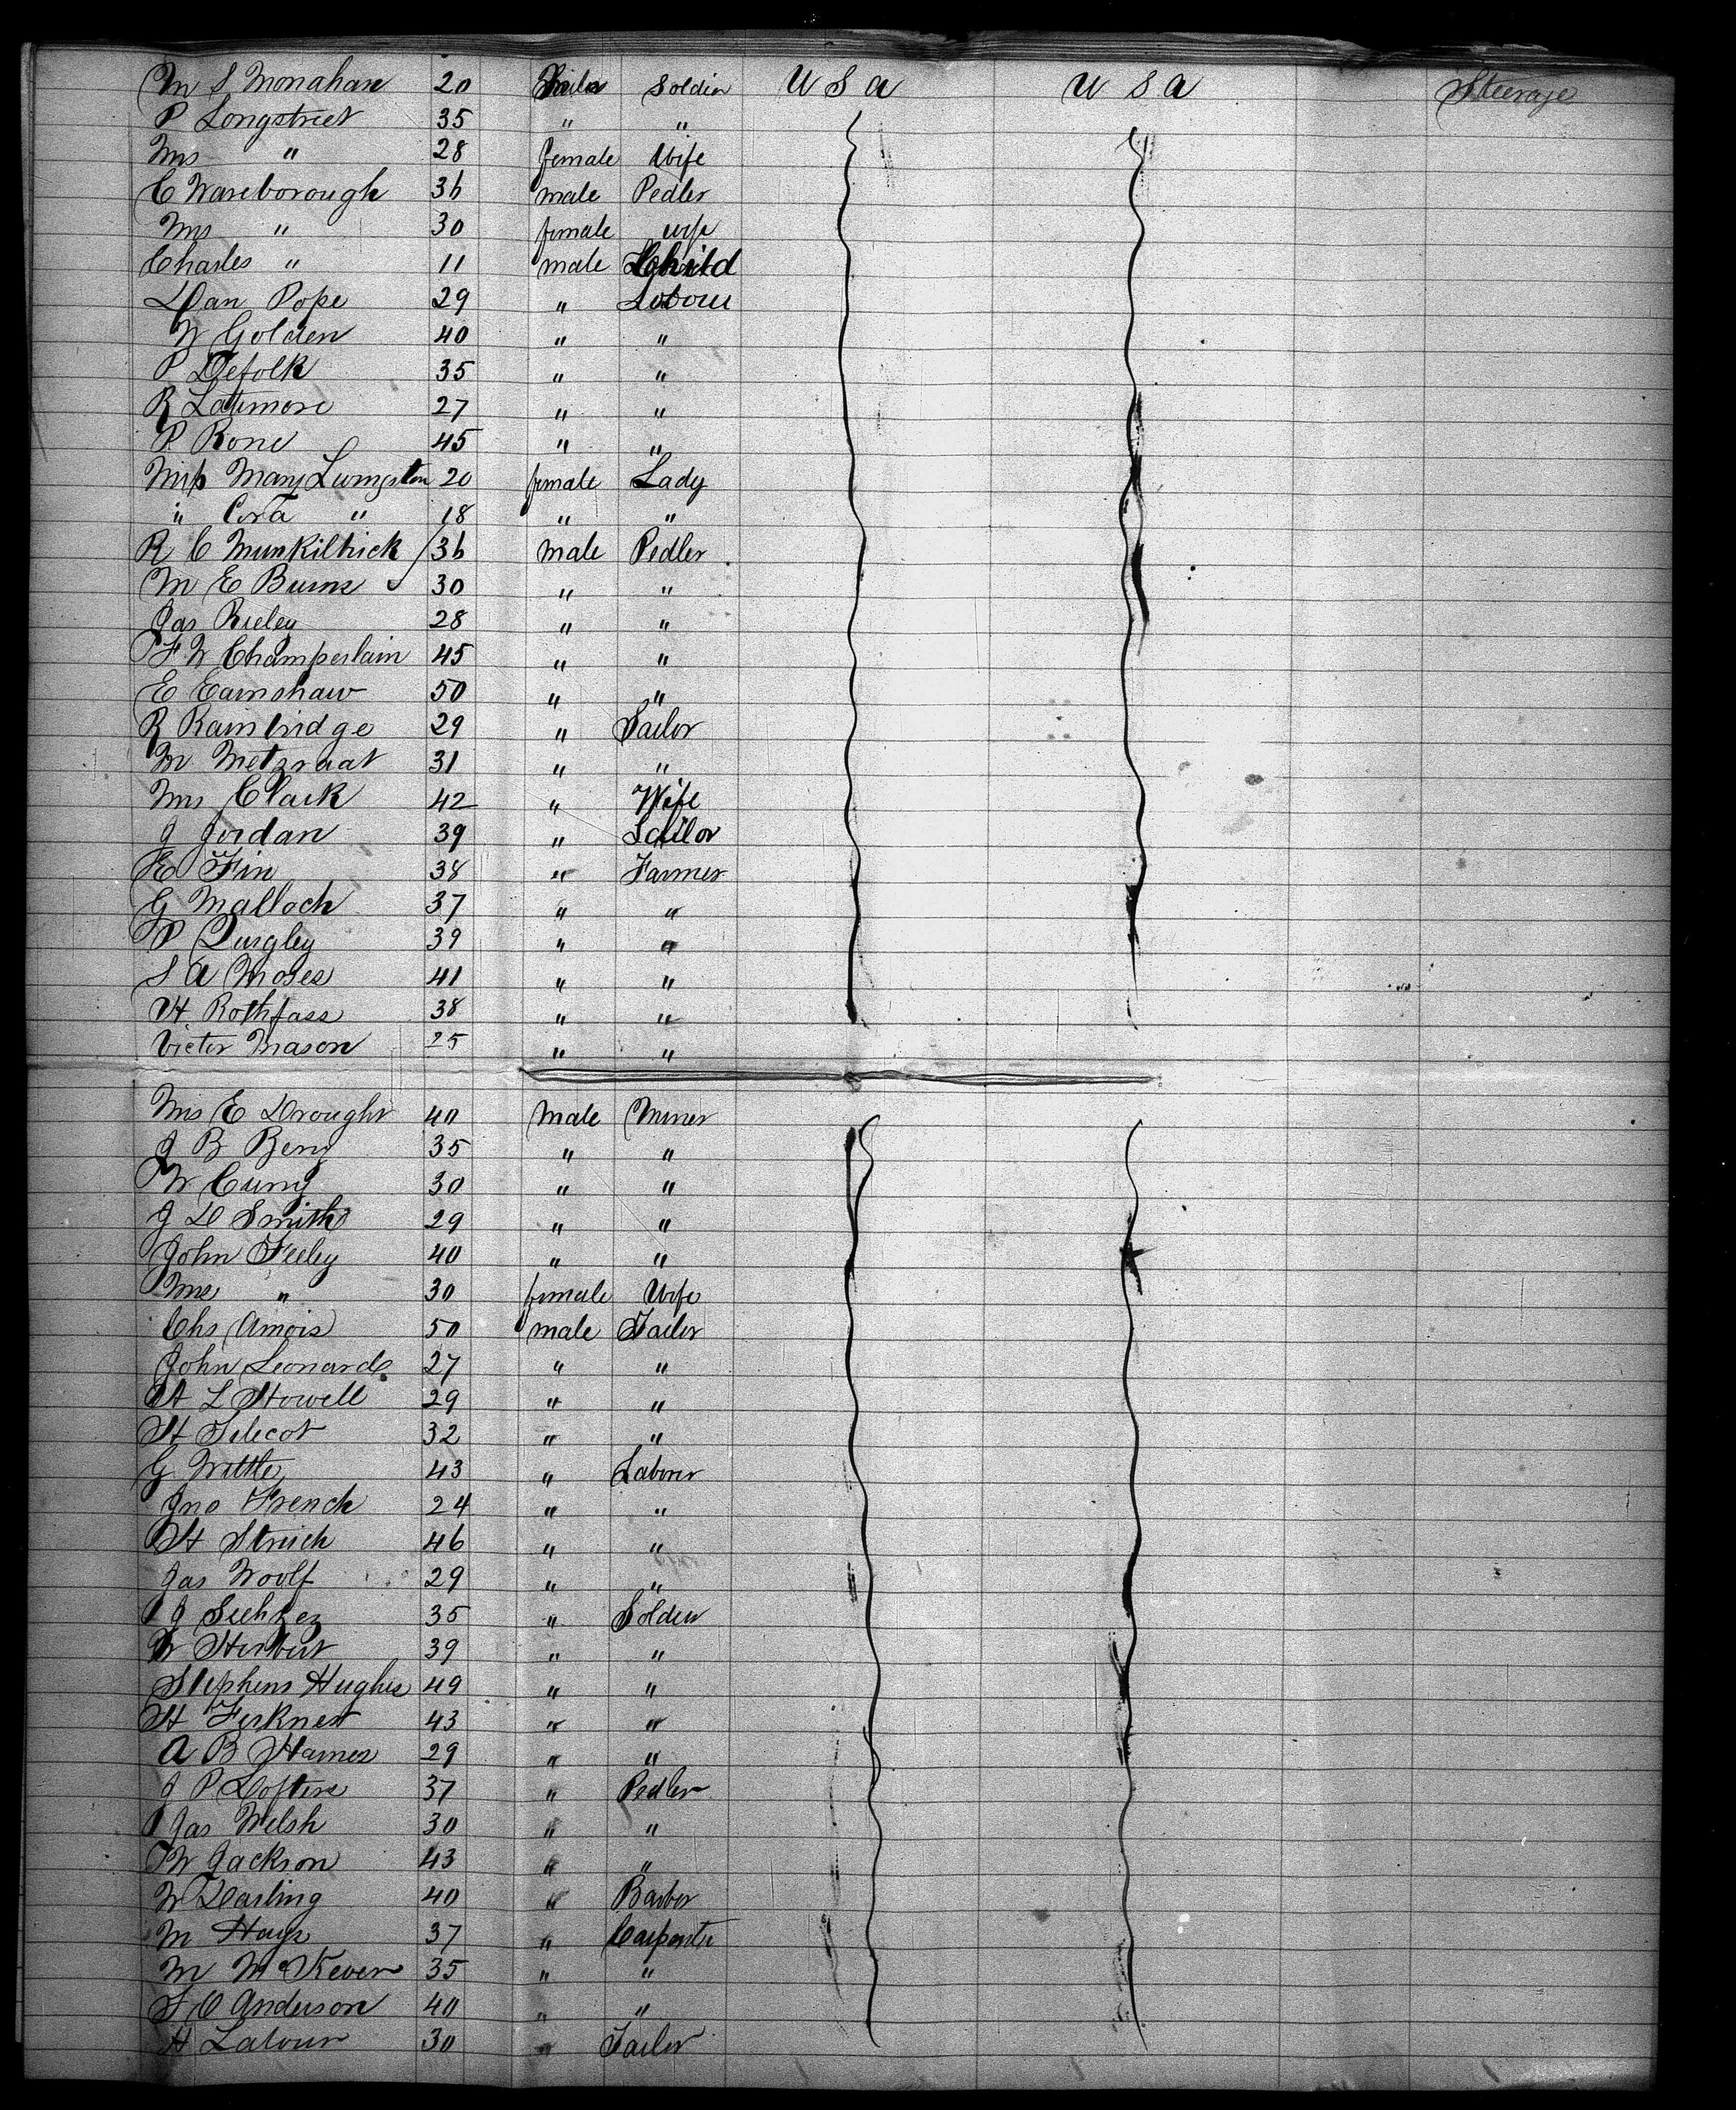 M S Monahan 20 Male Soldier U S A U S A Steerage
P Longstreet 35 " "
Mrs " 28 female Wife
C Wareborough 36 male Pedler
Mrs " 30 female wife
Charles " 11 male Child
Dan Pope 29 " Laborer
W Golden 40 " "
P Defolk 35 " "
R Latimore 27 " "
P Rone 45 " "
Miss Mary Livingston 20 female Lady
" Cora " 18 " "
R C Munkiltrick 36 male Pedler
M E Burns 30 " "
Jas Rieley 28 " "
F W Champerlain 45 " "
E Earnshaw 50 " "
R Rainbridge 29 " Sailor
M Metzraat 31 " "
Mrs Clark 42 " Wife
J Jordan 39 " Sailor
E Fin 38 " Farmer
G Malloch 37 " "
P Quigley 39 " "
S A Moses 41 " "
H Rothfass 38 " "
Victor Mason 25 " "
Mrs E Drought 40 Male Miner
J B Berry 35 " "
W Curry 30 " "
J D Smith 29 " "
John Feeley 40 " "
Mrs " 30 female Wife
Chs Amois 50 male Tailor
John Leonard 27 " "
A L Stowell 29 " "
H Silecot 32 " "
G Wittle 43 " Laborer
Jno French 24 " "
H Strich 46 " "
Jas Woolf 29 " "
J 35 " Soldier
W Herbert 39 " "
Stephens Hughes 49 " "
H Ferkness 43 " "
A B Hames 29 " "
J P Loftere 37 " Pedler
Jas Welsh 30 " "
W Jackson 43 " "
W Darling 40 " Barber
M Hays 37 " Carpenter
M McKever 35 " "
F C Anderson 40 " "
H Latour 30 " Tailor